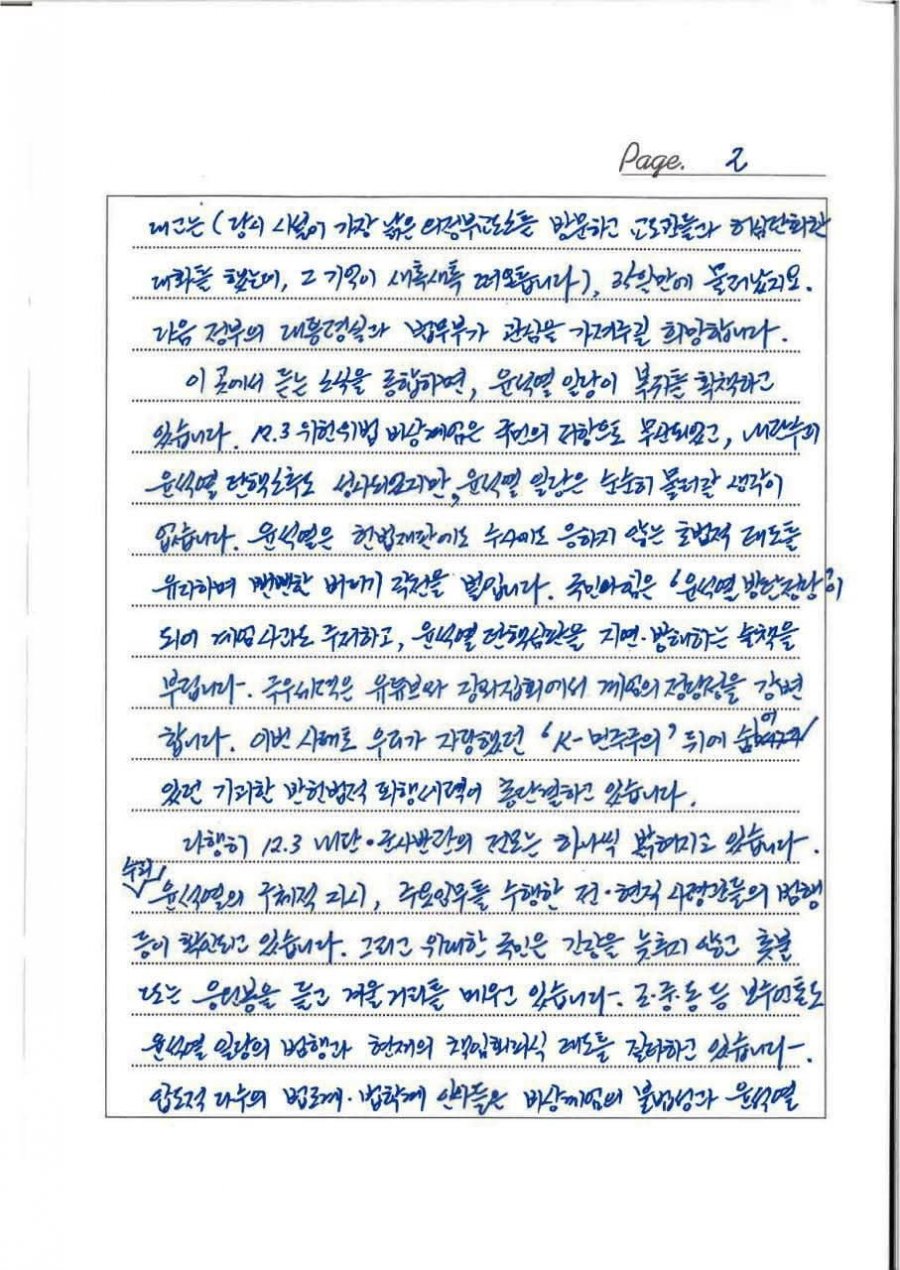 Page. 2
대그는 (당시 시설이 가장 낡은 의정부교도소를 방문하고 교도관들과 허심탄회한
대화를 했는데, 그 기억이 새록새록 떠오릅니다), 35일만에 물러났지요.
다음 정부의 대통령실과 법무부가 관심을 가져주길 희망합니다.
이 곳에서 듣는 소식을 종합하면, 윤석열 일당이 복귀를 획책하고
있습니다. 12.3 위헌위법 비상계엄은 국민의 저항으로 무산되었고, 내란수괴
윤석열 탄핵소추도 성사되었지만, 윤석열 일당은 순순히 물러날 생각이
없습니다. 윤석열은 헌법재판에도 수사에도 응하지 않는 호법적 태도를
유지하며 뻔뻔한 버티기 작전을 벌입니다. 국민의힘은 '윤석열 방탄정당'이
되어 계엄사과도 주저하고, 윤석열 탄핵심판을 지연·방해하는 술책을
부립니다. 극우세력은 유튜브와 광화집회에서 계엄의 정당성을 강변
합니다. 이번 사태로 우리가 자랑했던 'K-민주주의' 뒤에 숨어
있던 기괴한 반헌법적 퇴행세력이 총단결하고 있습니다.
다행히 12.3 내란·군사반란의 전모는 하나씩 밝혀지고 있습니다.
수괴 윤석열의 구체적 지시, 주요임무를 수행한 전·현직 사령관들의 범행
등이 확인되고 있습니다. 그리고 위대한 국민은 긴장을 늦추지 않고 촛불
또는 응원봉을 들고 겨울거리를 메우고 있습니다. 조·중·동 등 보수언론도
윤석열 일당의 범행과 현재의 책임회피식 태도를 질타하고 있습니다.
압도적 다수의 법조계·법학계 인사들은 비상계엄의 불법성과 윤석열